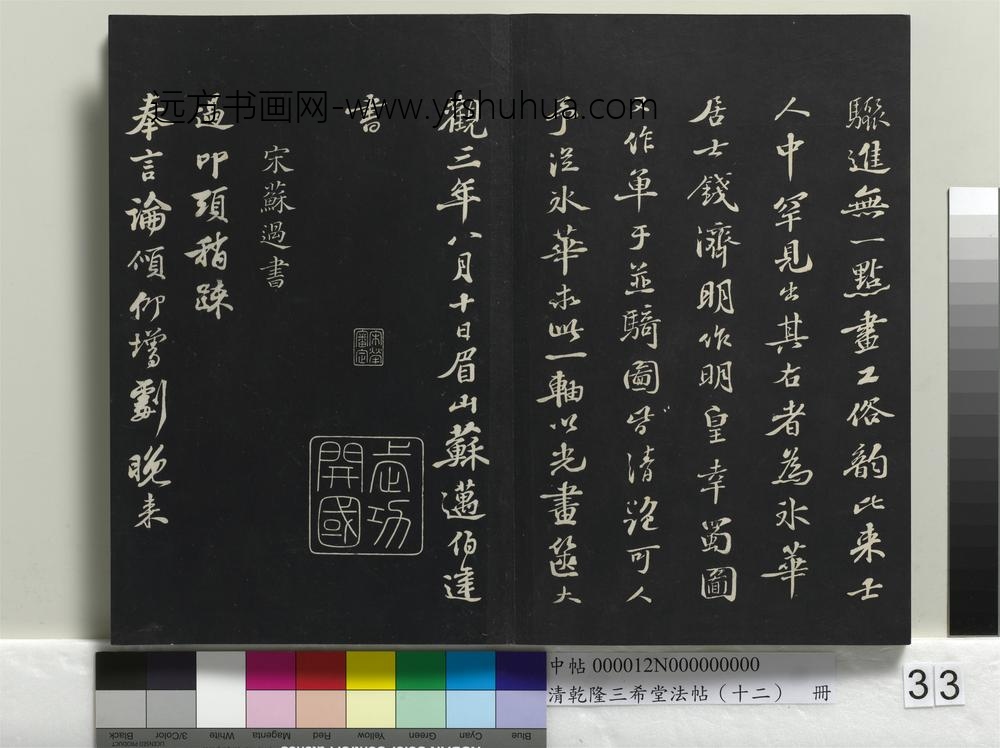 驟進無一點畫工俗韵比来士
人中罕見出其右者為氷華
居士錢濟明作明皇幸蜀圖
作單于並騎圖皆清絕可人
予從氷華求此一軸以光畫篋大
觀三年八月十日眉山蘇邁伯達
書
武功
開國
宋蘇過書
過叩頭稍疎
奉言論傾仰增劇晚来
远方书画网-www.yfshuhua.com
中帖 000012N000000000
清乾隆三希堂法帖（十二） 冊
33
Black
3/Color
White
Magenta
Red
Yellow
Green
Cyan
Blue